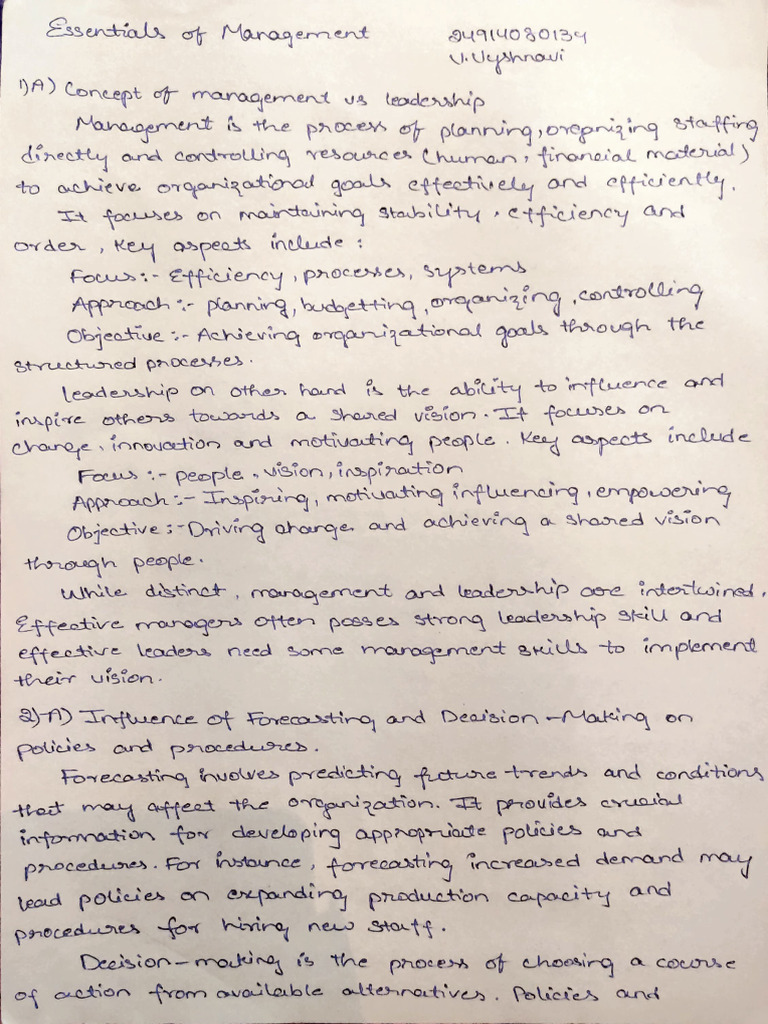 Essentials of Management 24914080134
V.Vyshnavi
1)A) Concept of management vs leadership
Management is the process of planning, organizing staffing
directly and controlling resources (human, financial material)
to achieve organizational goals effectively and efficiently.
It focuses on maintaining stability, efficiency and
order, Key aspects include :
Focus :- Efficiency, processes, systems
Approach :- planning, budgetting, organizing, controlling
Objective :- Achieving organizational goals through the
structured processes.
Leadership on other hand is the ability to influence and
inspire others towards a shared vision. It focuses on
change, innovation and motivating people. Key aspects include
Focus :- people, vision, inspiration
Approach :- Inspiring, motivating influencing, empowering
Objective :- Driving change and achieving a shared vision
through people.
While distinct, management and leadership are intertwined.
Effective managers often posses strong leadership skill and
effective leaders need some management skills to implement
their vision.
2)-A) Influence of Forecasting and Decision-Making on
policies and procedures.
Forecasting involves predicting future trends and conditions
that may affect the organization. It provides crucial
information for developing appropriate policies and
procedures. For instance, forecasting increased demand may
lead policies on expanding production capacity and
procedures for hiring new staff.
Decision-making is the process of choosing a course
of action from available alternatives. Policies and